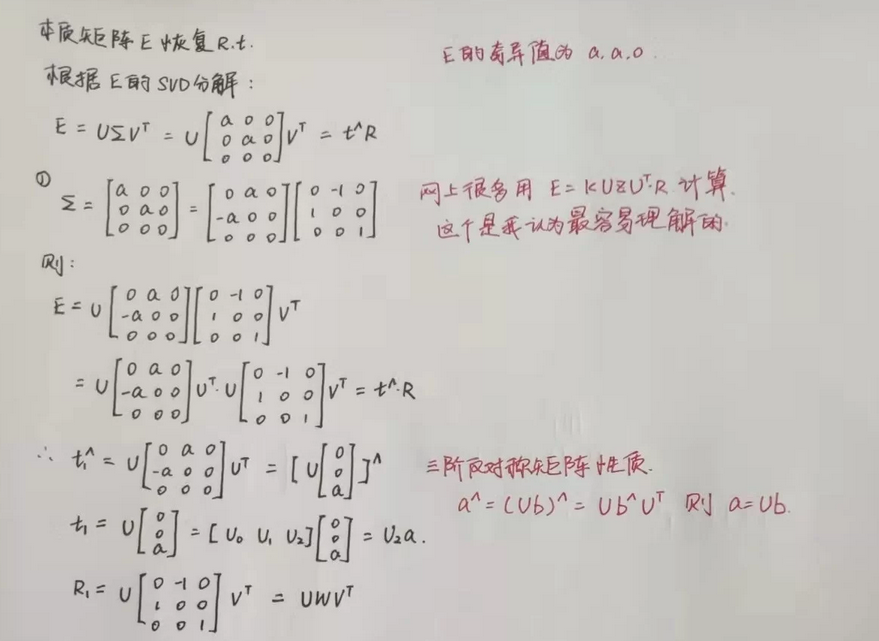 本质矩阵 E 恢复 R.t.
E的奇异值为 a.a.0.
根据 E的 SVD分解:
E = UΣVᵀ = U [a 0 0; 0 a 0; 0 0 0] Vᵀ = t^R
① Σ = [a 0 0; 0 a 0; 0 0 0] = [0 a 0; -a 0 0; 0 0 0] [0 -1 0; 1 0 0; 0 0 1]
网上很多用 E = KUZUᵀ·R 计算.
这个是我认为最容易理解的.
则:
E = U [0 a 0; -a 0 0; 0 0 0] [0 -1 0; 1 0 0; 0 0 1] Vᵀ
= U [0 a 0; -a 0 0; 0 0 0] Uᵀ·U [0 -1 0; 1 0 0; 0 0 1] Vᵀ = t^·R
∴ t₁^ = U [0 a 0; -a 0 0; 0 0 0] Uᵀ = [U [0; 0; a]]^
三阶反对称矩阵性质.
a^ = (Ub)^ = Ub^Uᵀ 则 a=Ub.
t₁ = U [0; 0; a] = [U₀ U₁ U₂] [0; 0; a] = U₂a.
R₁ = U [0 -1 0; 1 0 0; 0 0 1] Vᵀ = UWVᵀ